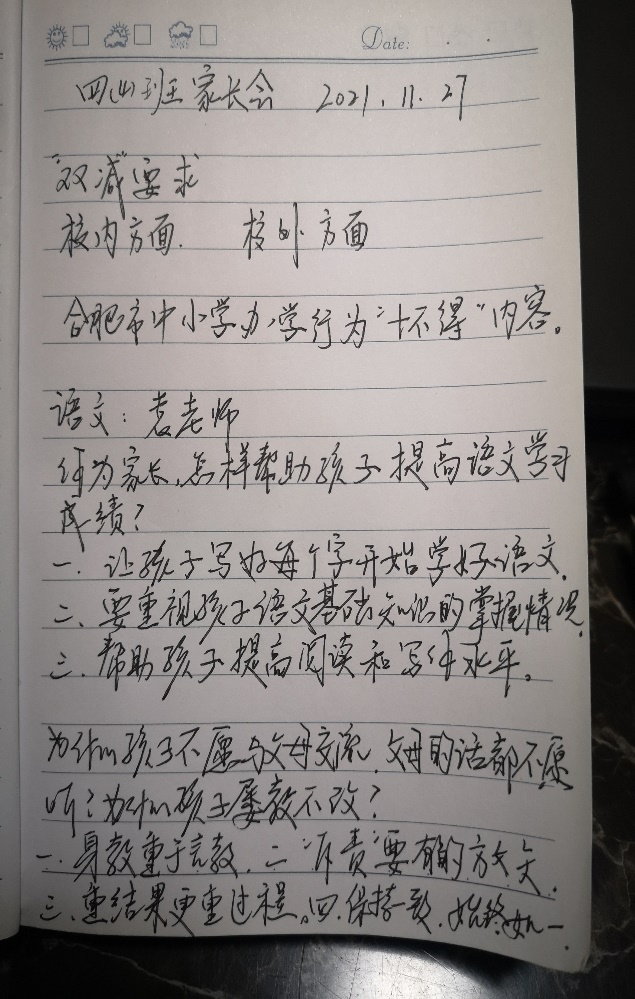 Date: . .
四(4)班家长会 2021.11.27
"双减"要求
校内方面. 校外方面
合肥市中小学办学行为"十不得"内容。
语文:袁老师
作为家长,怎样帮助孩子提高语文学习
成绩?
一.让孩子写好每个字开始学好语文.
二.要重视孩子语文基础知识的掌握情况.
三.帮助孩子提高阅读和写作水平.
为什么孩子不愿与父母交流,父母的话都不愿
听?为什么孩子屡教不改?
一.身教重于言教.二"斥责"要有的放矢.
三.重结果更重过程。四.保持一致.始终如一.